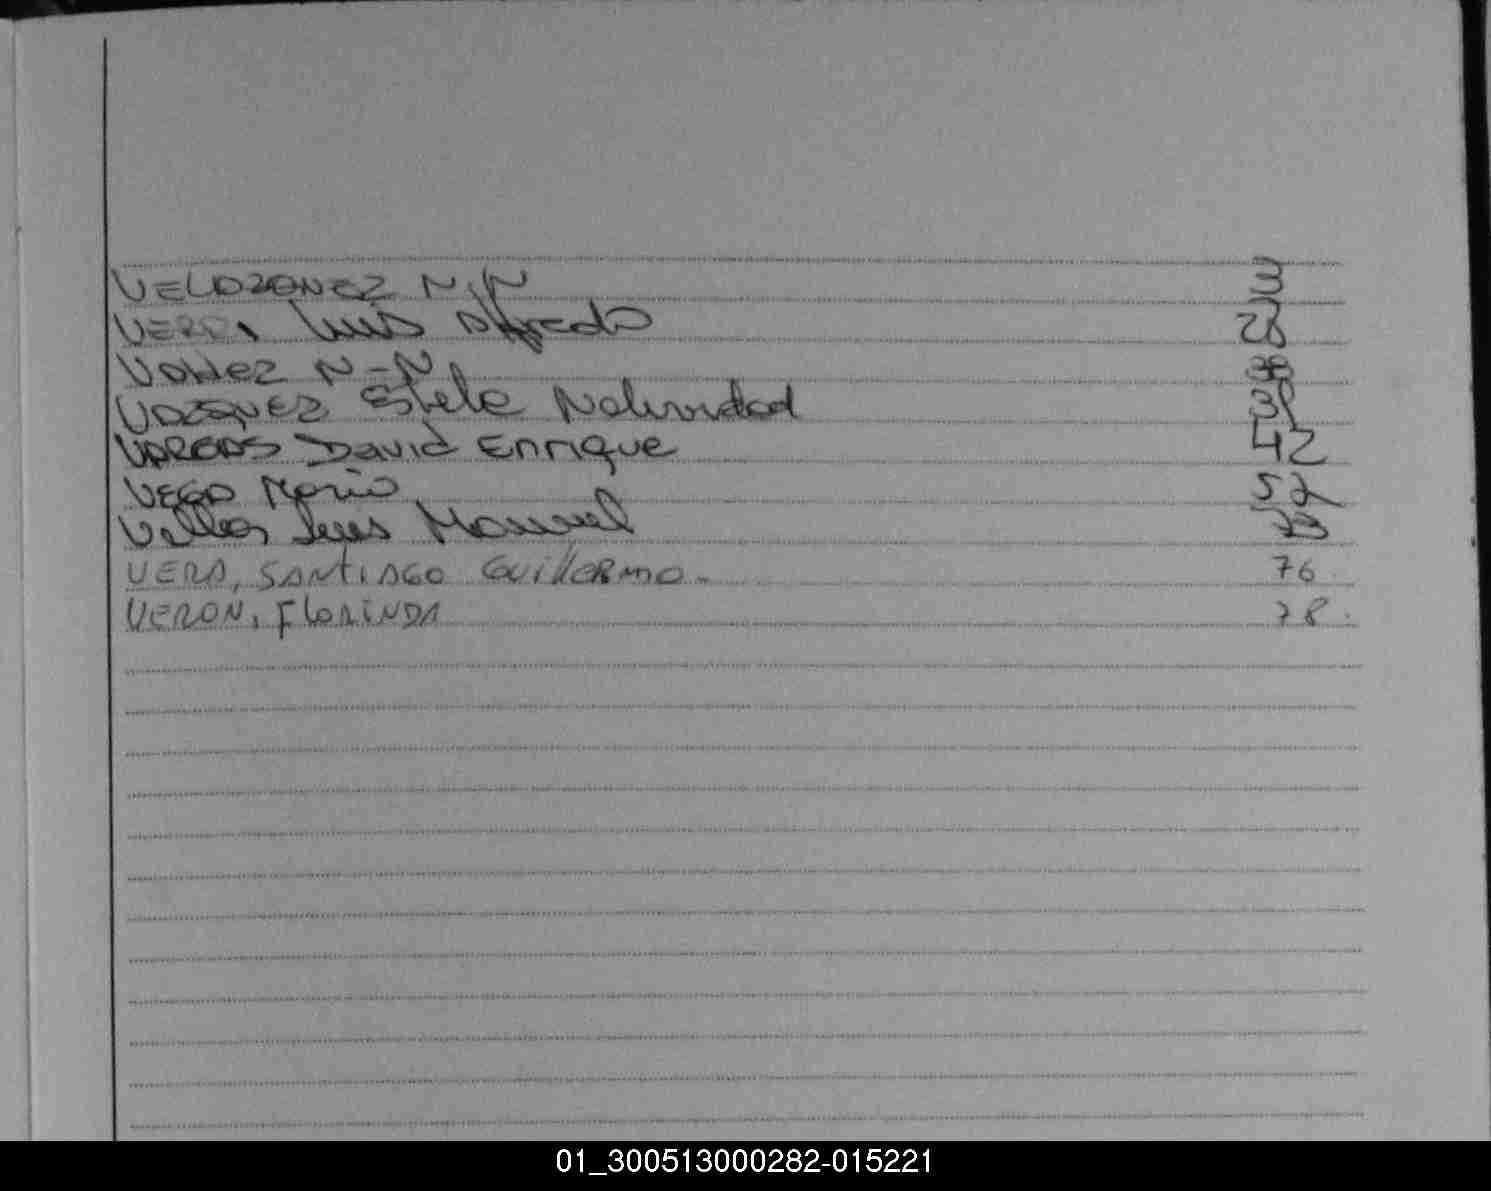 VELAZQUEZ N.N 3
Luis Alfredo 28
Valdez N-N
VAZQUEZ Estela Natividad
VARGAS David Enrique 42
VEGA Mario 57
Luis Manuel 73
VERA, SANTIAGO GuillERMO. 76
VERON, FlORINDA 78.
01_300513000282-015221